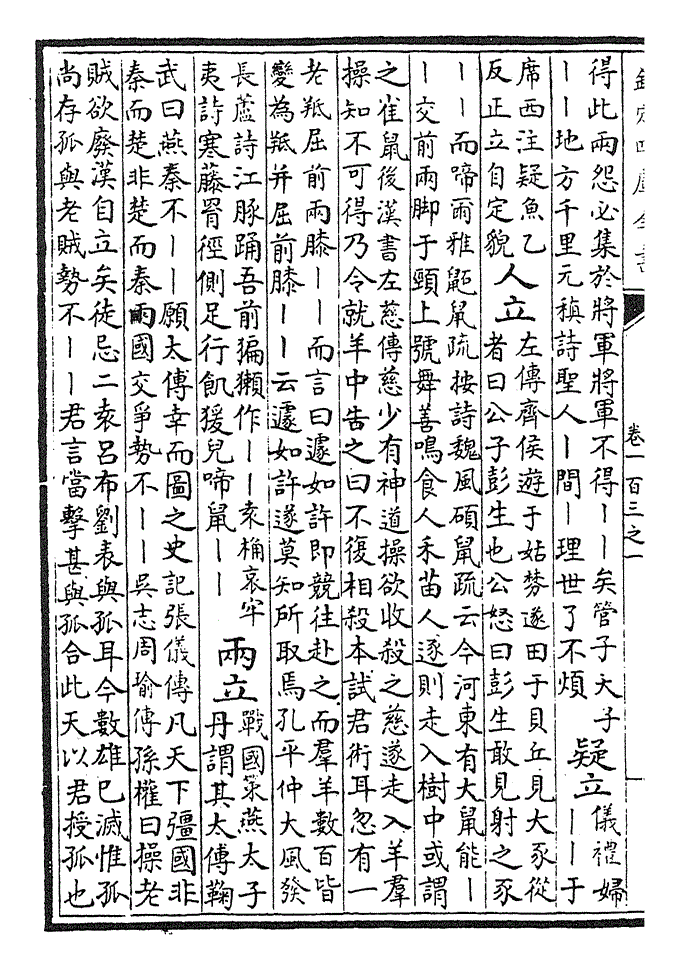 欽定四庫全書
卷一百三之一
得此兩怨必集於將軍將軍不得丨丨矣管子天子
丨丨地方千里元稹詩聖人丨間丨理世了不煩
疑立
儀禮婦
丨丨于
席西注疑魚乙
反正立自定貌
人立
左傳齊侯遊于姑棼遂田于貝丘見大豕從
者曰公子彭生也公怒曰彭生敢見射之豕
丨丨而啼爾雅鼫鼠疏按詩魏風碩鼠疏云今河東有大鼠能丨
丨交前兩脚于頸上號舞善鳴食人禾苗人逐則走入樹中或謂
之雀鼠後漢書左慈傳慈少有神道操欲收殺之慈遂走入羊羣
操知不可得乃令就羊中告之曰不復相殺本試君術耳忽有一
老羝屈前兩膝丨丨而言曰遽如許即競往赴之而羣羊數百皆
變為羝并屈前膝丨丨云遽如許遂莫知所取焉孔平仲大風發
長蘆詩江豚踊吾前猵獺作丨丨袁桷哀牢
夷詩寒藤罥徑側足行飢猨兒啼鼠丨丨
兩立
戰國策燕太子
丹謂其太傅鞠
武曰燕秦不丨丨願太傅幸而圖之史記張儀傳凡天下彊國非
秦而楚非楚而秦兩國交爭勢不丨丨吳志周瑜傳孫權曰操老
賊欲廢漢自立矣徒忌二袁呂布劉表與孤耳今數雄已滅惟孤
尚存孤與老賊勢不丨丨君言當擊甚與孤合此天以君授孤也